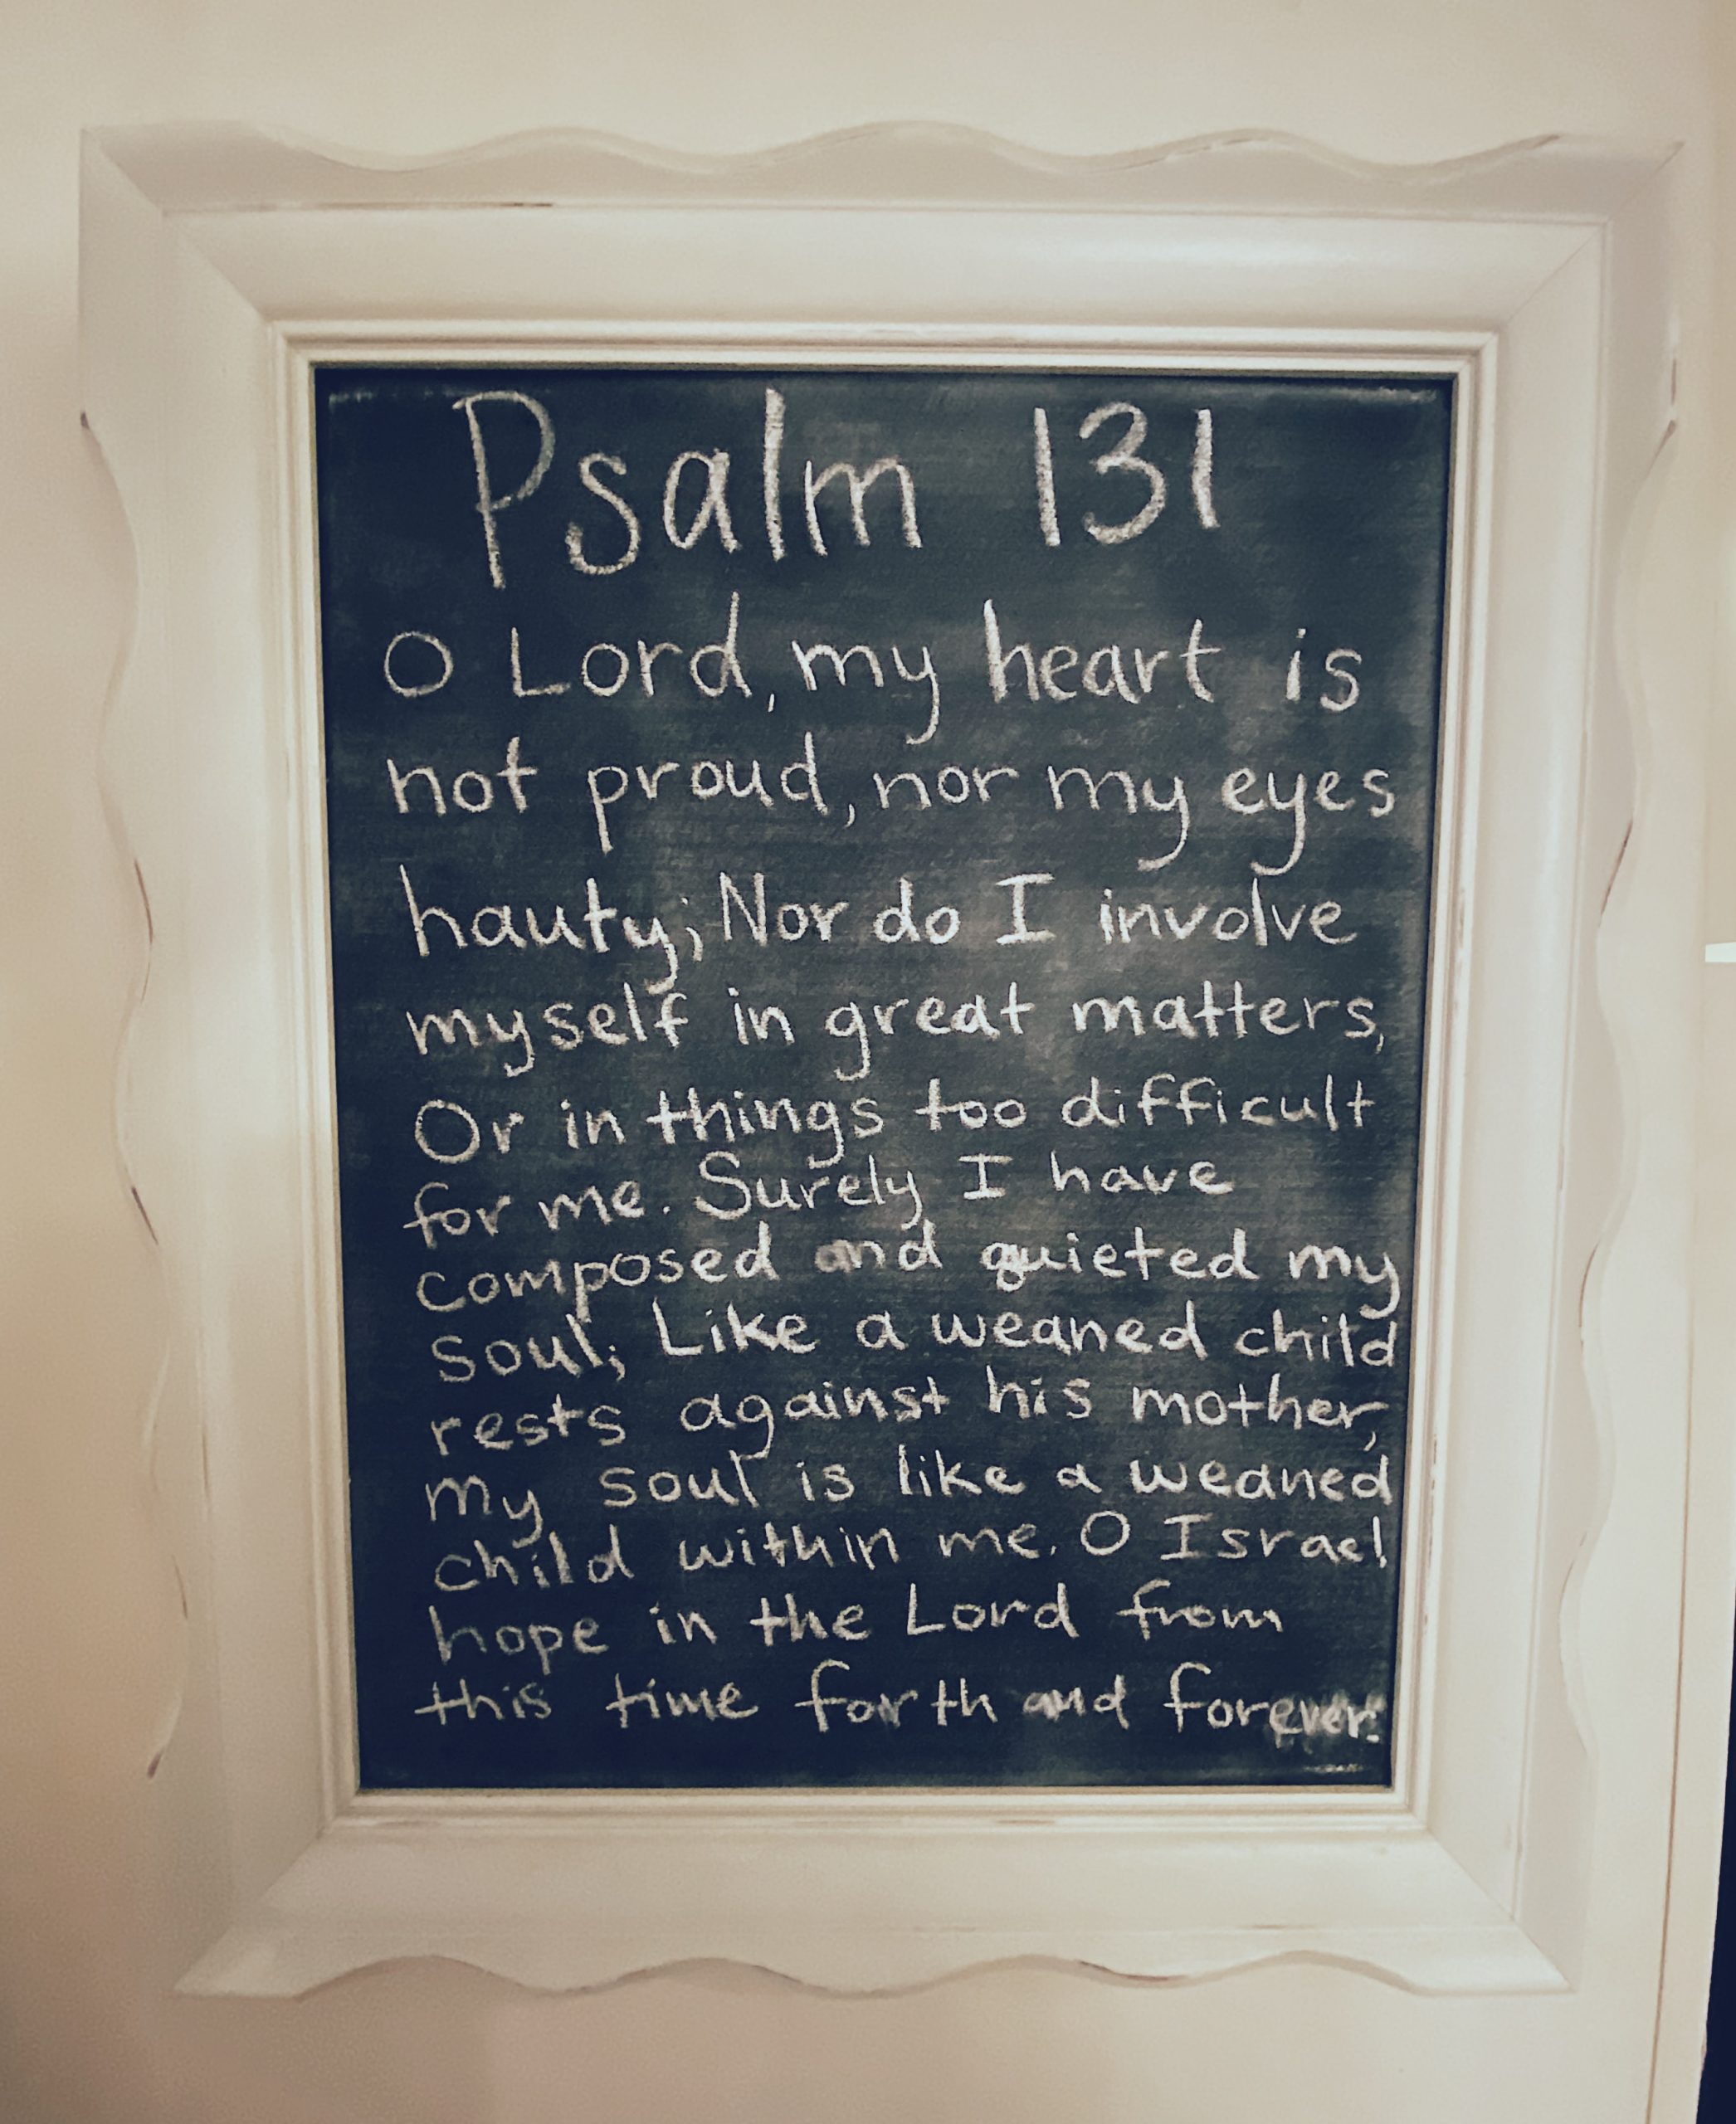 Psalm 131
O Lord, my heart is
not proud, nor my eyes
hauty; Nor do I involve
myself in great matters,
Or in things too difficult
for me. Surely I have
composed and quieted my
soul; Like a weaned child
rests against his mother,
my soul is like a weaned
child within me. O Israel,
hope in the Lord from
this time forth and forever.